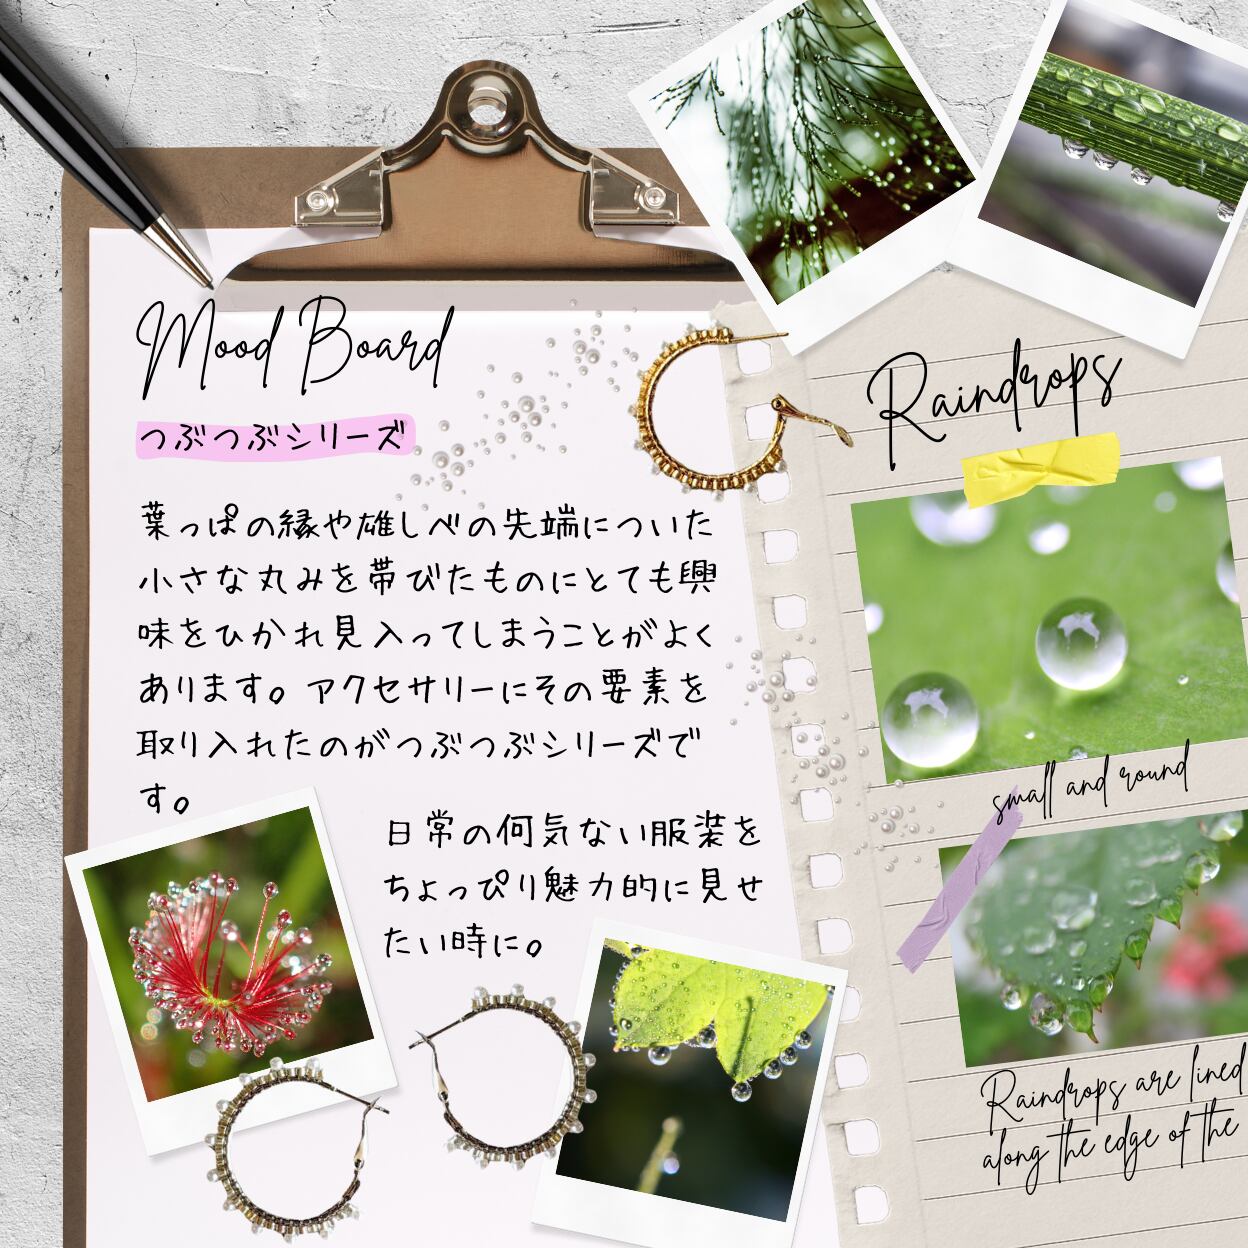 Mood Board
つぶつぶシリーズ
葉っぱの縁や雄しべの先端についた
小さな丸みを帯びたものにとても興
味をひかれ見入ってしまうことがよく
あります。アクセサリーにその要素を
取り入れたのがつぶつぶシリーズで
す。
日常の何気ない服装を
ちょっぴり魅力的に見せ
たい時に。
Raindrops
small and round
Raindrops are lined
along the edge of the